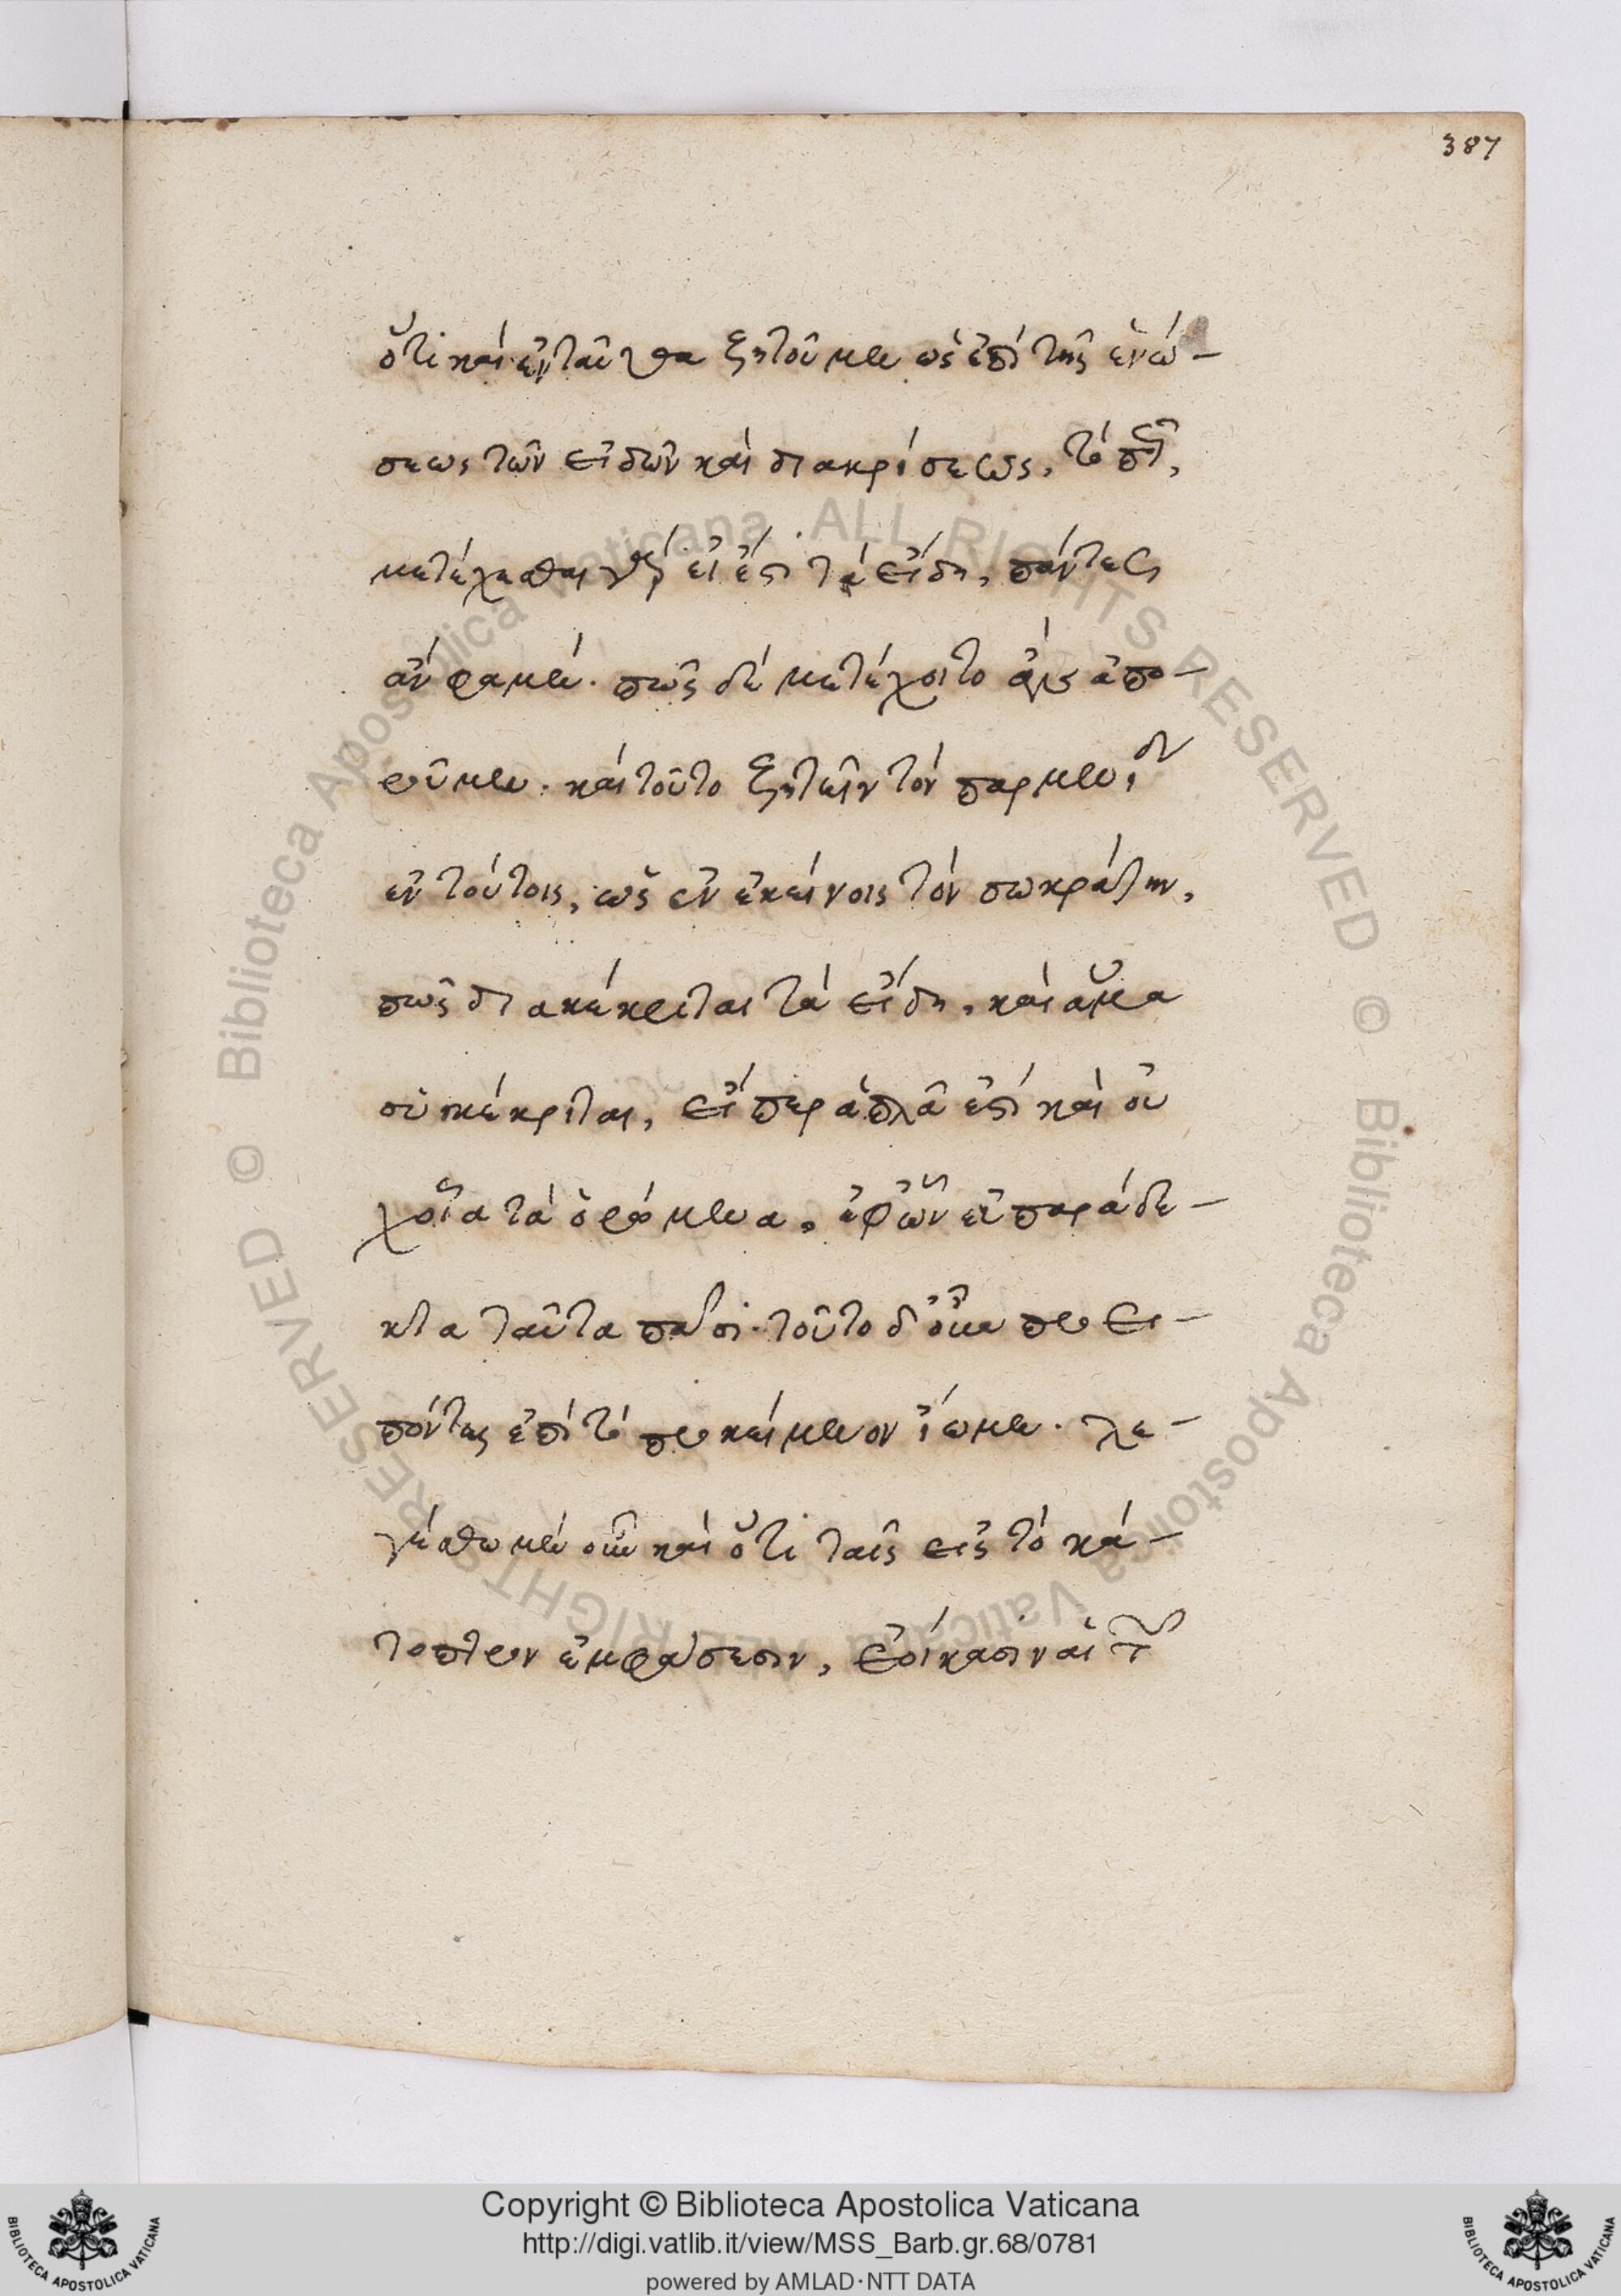 387
ὅτι καὶ ἐνταῦθα ζητοῦμεν ὡς ἐπὶ τῆς ἑνώ-
σεως τῶν εἰδῶν καὶ διακρίσεως, τὸ πῶς,
μετέχεσθαι γὰρ εἰ ἔστι τὰ εἴδη, πάντες
ἂν φαμέν. πῶς δὲ μετέχοιτο ἀπο-
ροῦμεν. καὶ τοῦτο ζητεῖν τὸν παρμενίδ
ἐν τούτοις, ὡς ἐν ἐκείνοις τὸν σωκράτην,
πῶς διακέκριται τὰ εἴδη, καὶ ἅμα
συγκέκριται, εἴπερ ἁπλᾶ ἐστὶ καὶ οὐ
χ οἷα τὰ ὁρώμενα, ἐφ ὧν εὐπαράδε-
κτα ταῦτα πᾶσι. τοῦτο δ οὖν προει-
πόντες ἐπὶ τὸ προκείμενον ἴωμεν. λε-
γέσθω μὲν οὖν καὶ ὅτι ταῖς εἰς τὸ κά-
τοπτρον ἐμφάσεσιν, ἐοίκασιν αἱ τ
Copyright © Biblioteca Apostolica Vaticana
http://digi.vatlib.it/view/MSS_Barb.gr.68/0781
powered by AMLAD·NTT DATA
BIBLIOTECA APOSTOLICA VATICANA
BIBLIOTECA APOSTOLICA VATICANA
© Biblioteca Apostolica Vaticana . ALL RIGHTS RESERVED © Biblioteca Apostolica Vaticana . ALL RIGHTS RESERVED